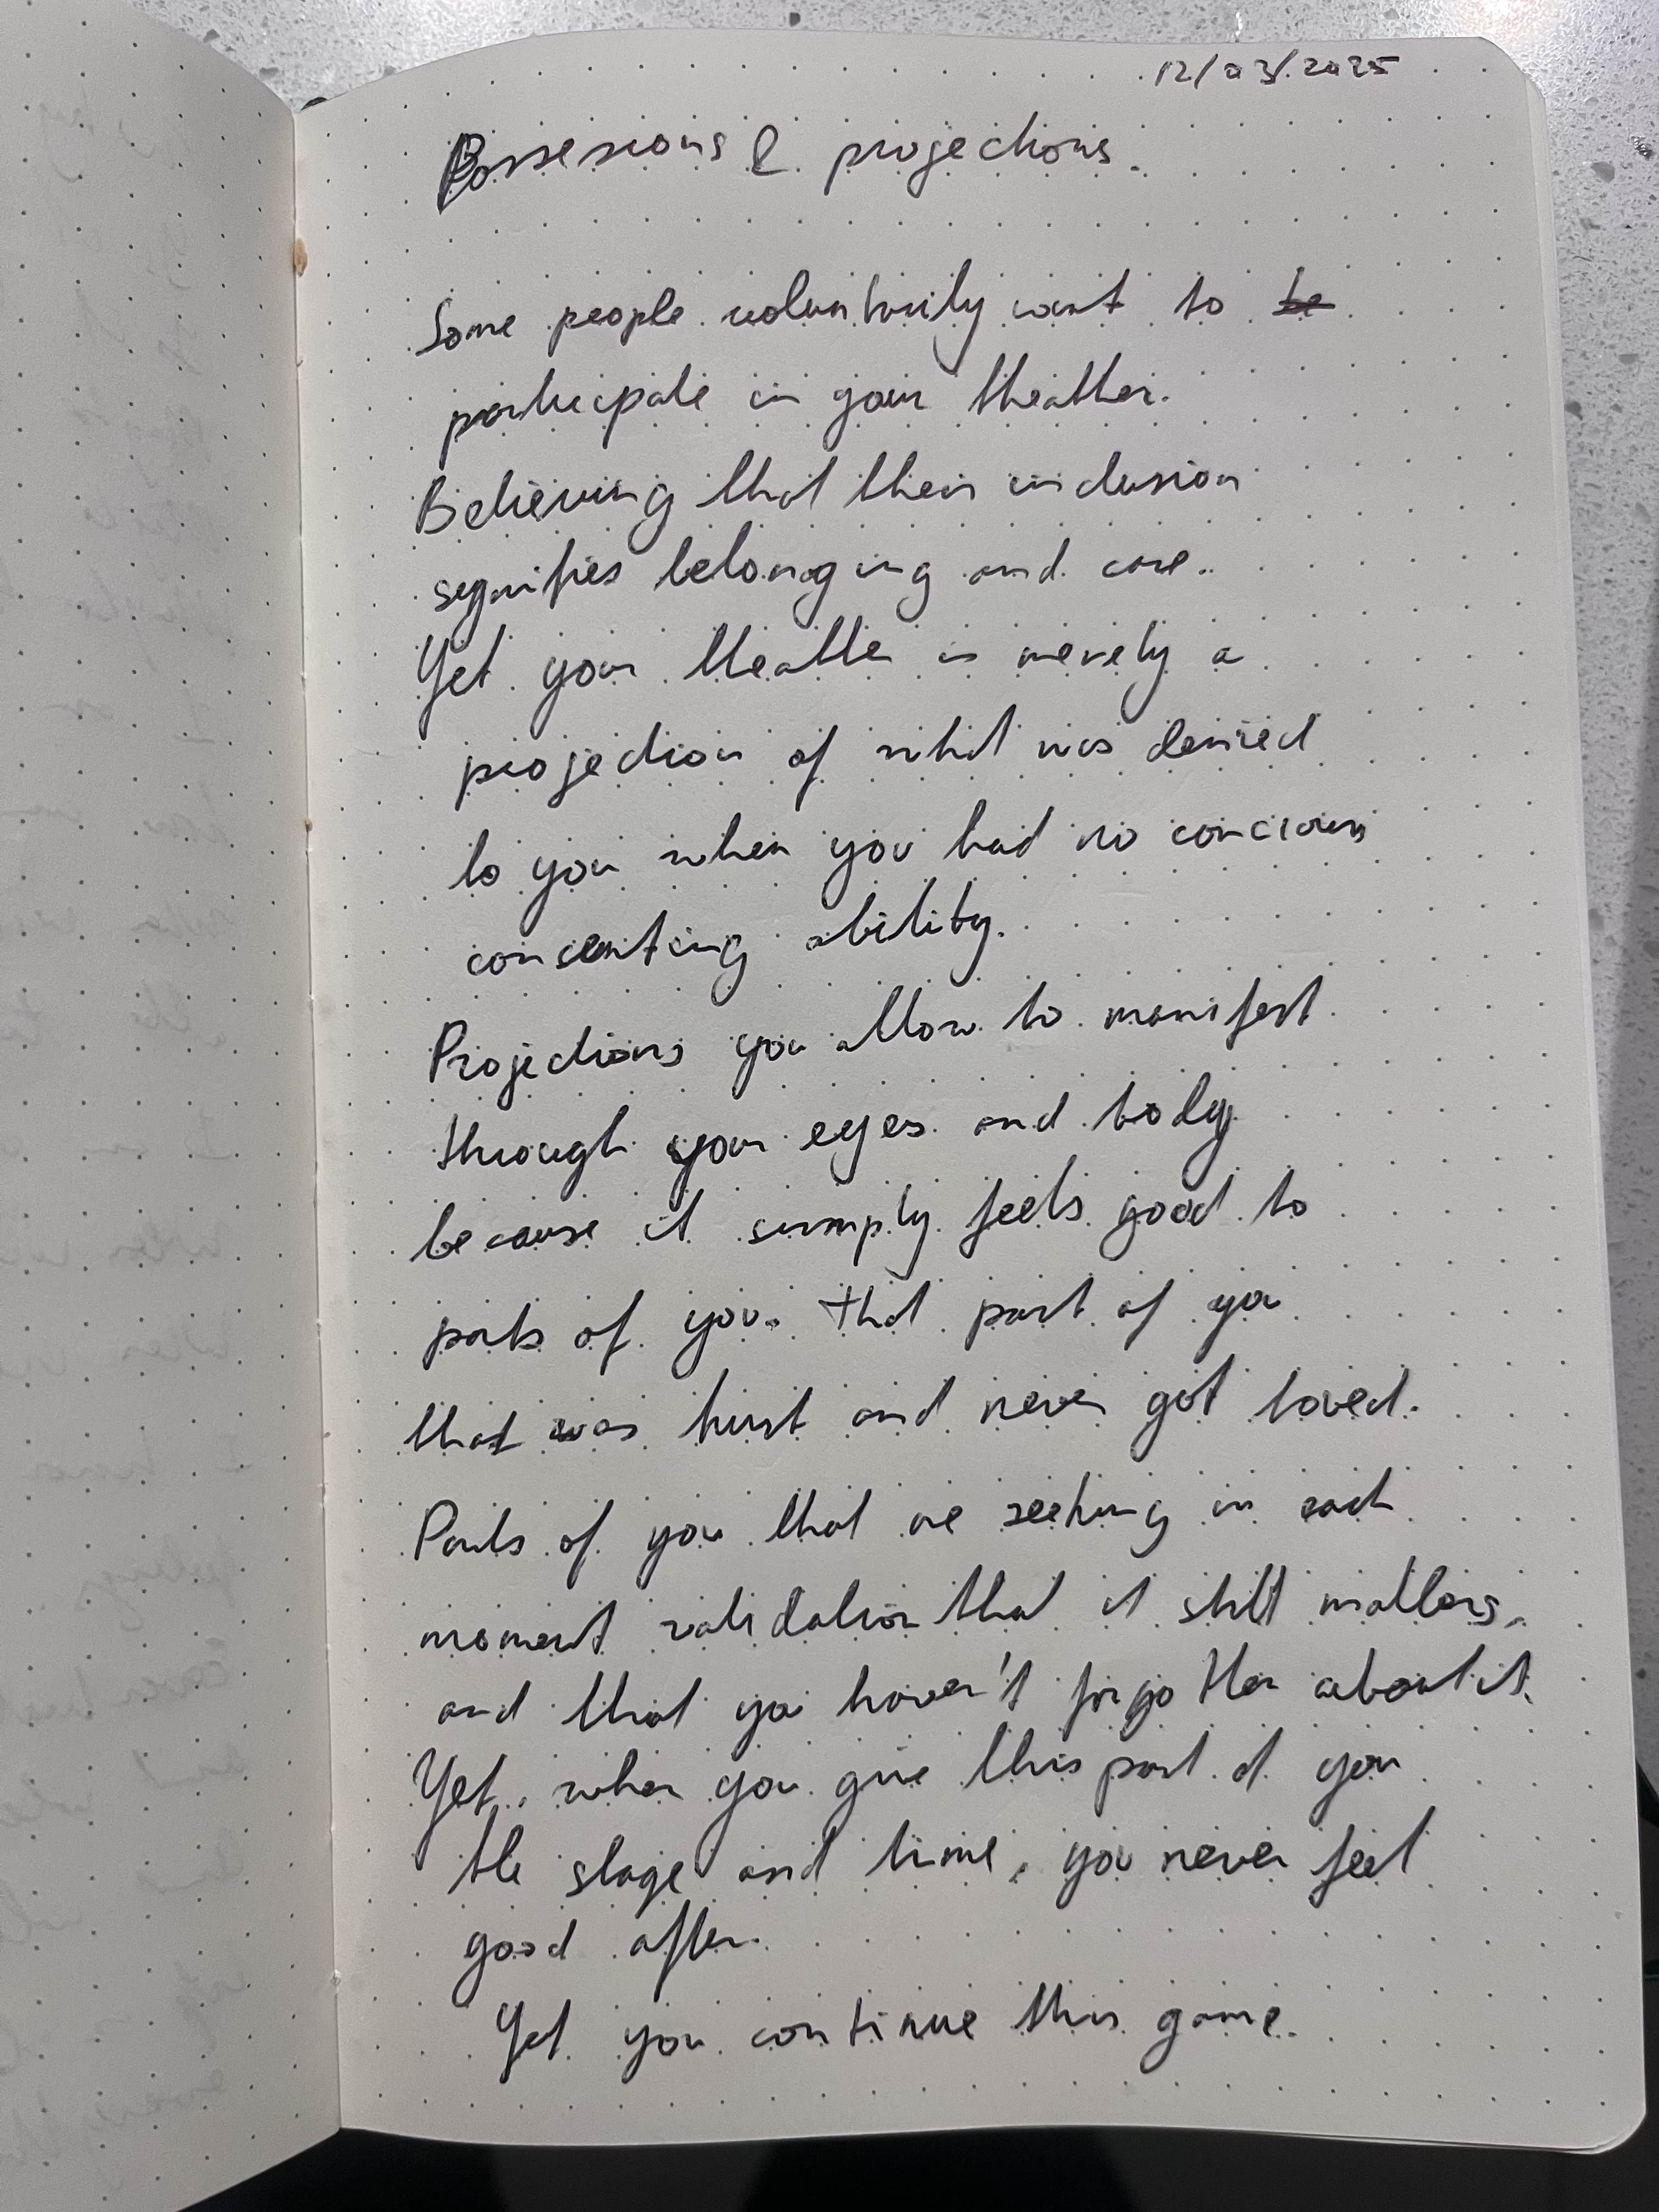 12/03/2025
Possessions & projections.
Some people voluntarily want to be
participate in your theather.
Believing that their inclusion
signifies belonging and care.
Yet your theatre is merely a
projection of what was denied
to you when you had no concious
consenting ability.
Projections you allow to manifest
through your eyes and body
because it simply feels good to
parts of you. That part of you
that was hurt and never got loved.
Parts of you that are seeking in each
moment validation that it still matters,
and that you haven't forgotten about it.
Yet, when you give this part of you
the stage and time, you never feel
good after.
Yet you continue this game.